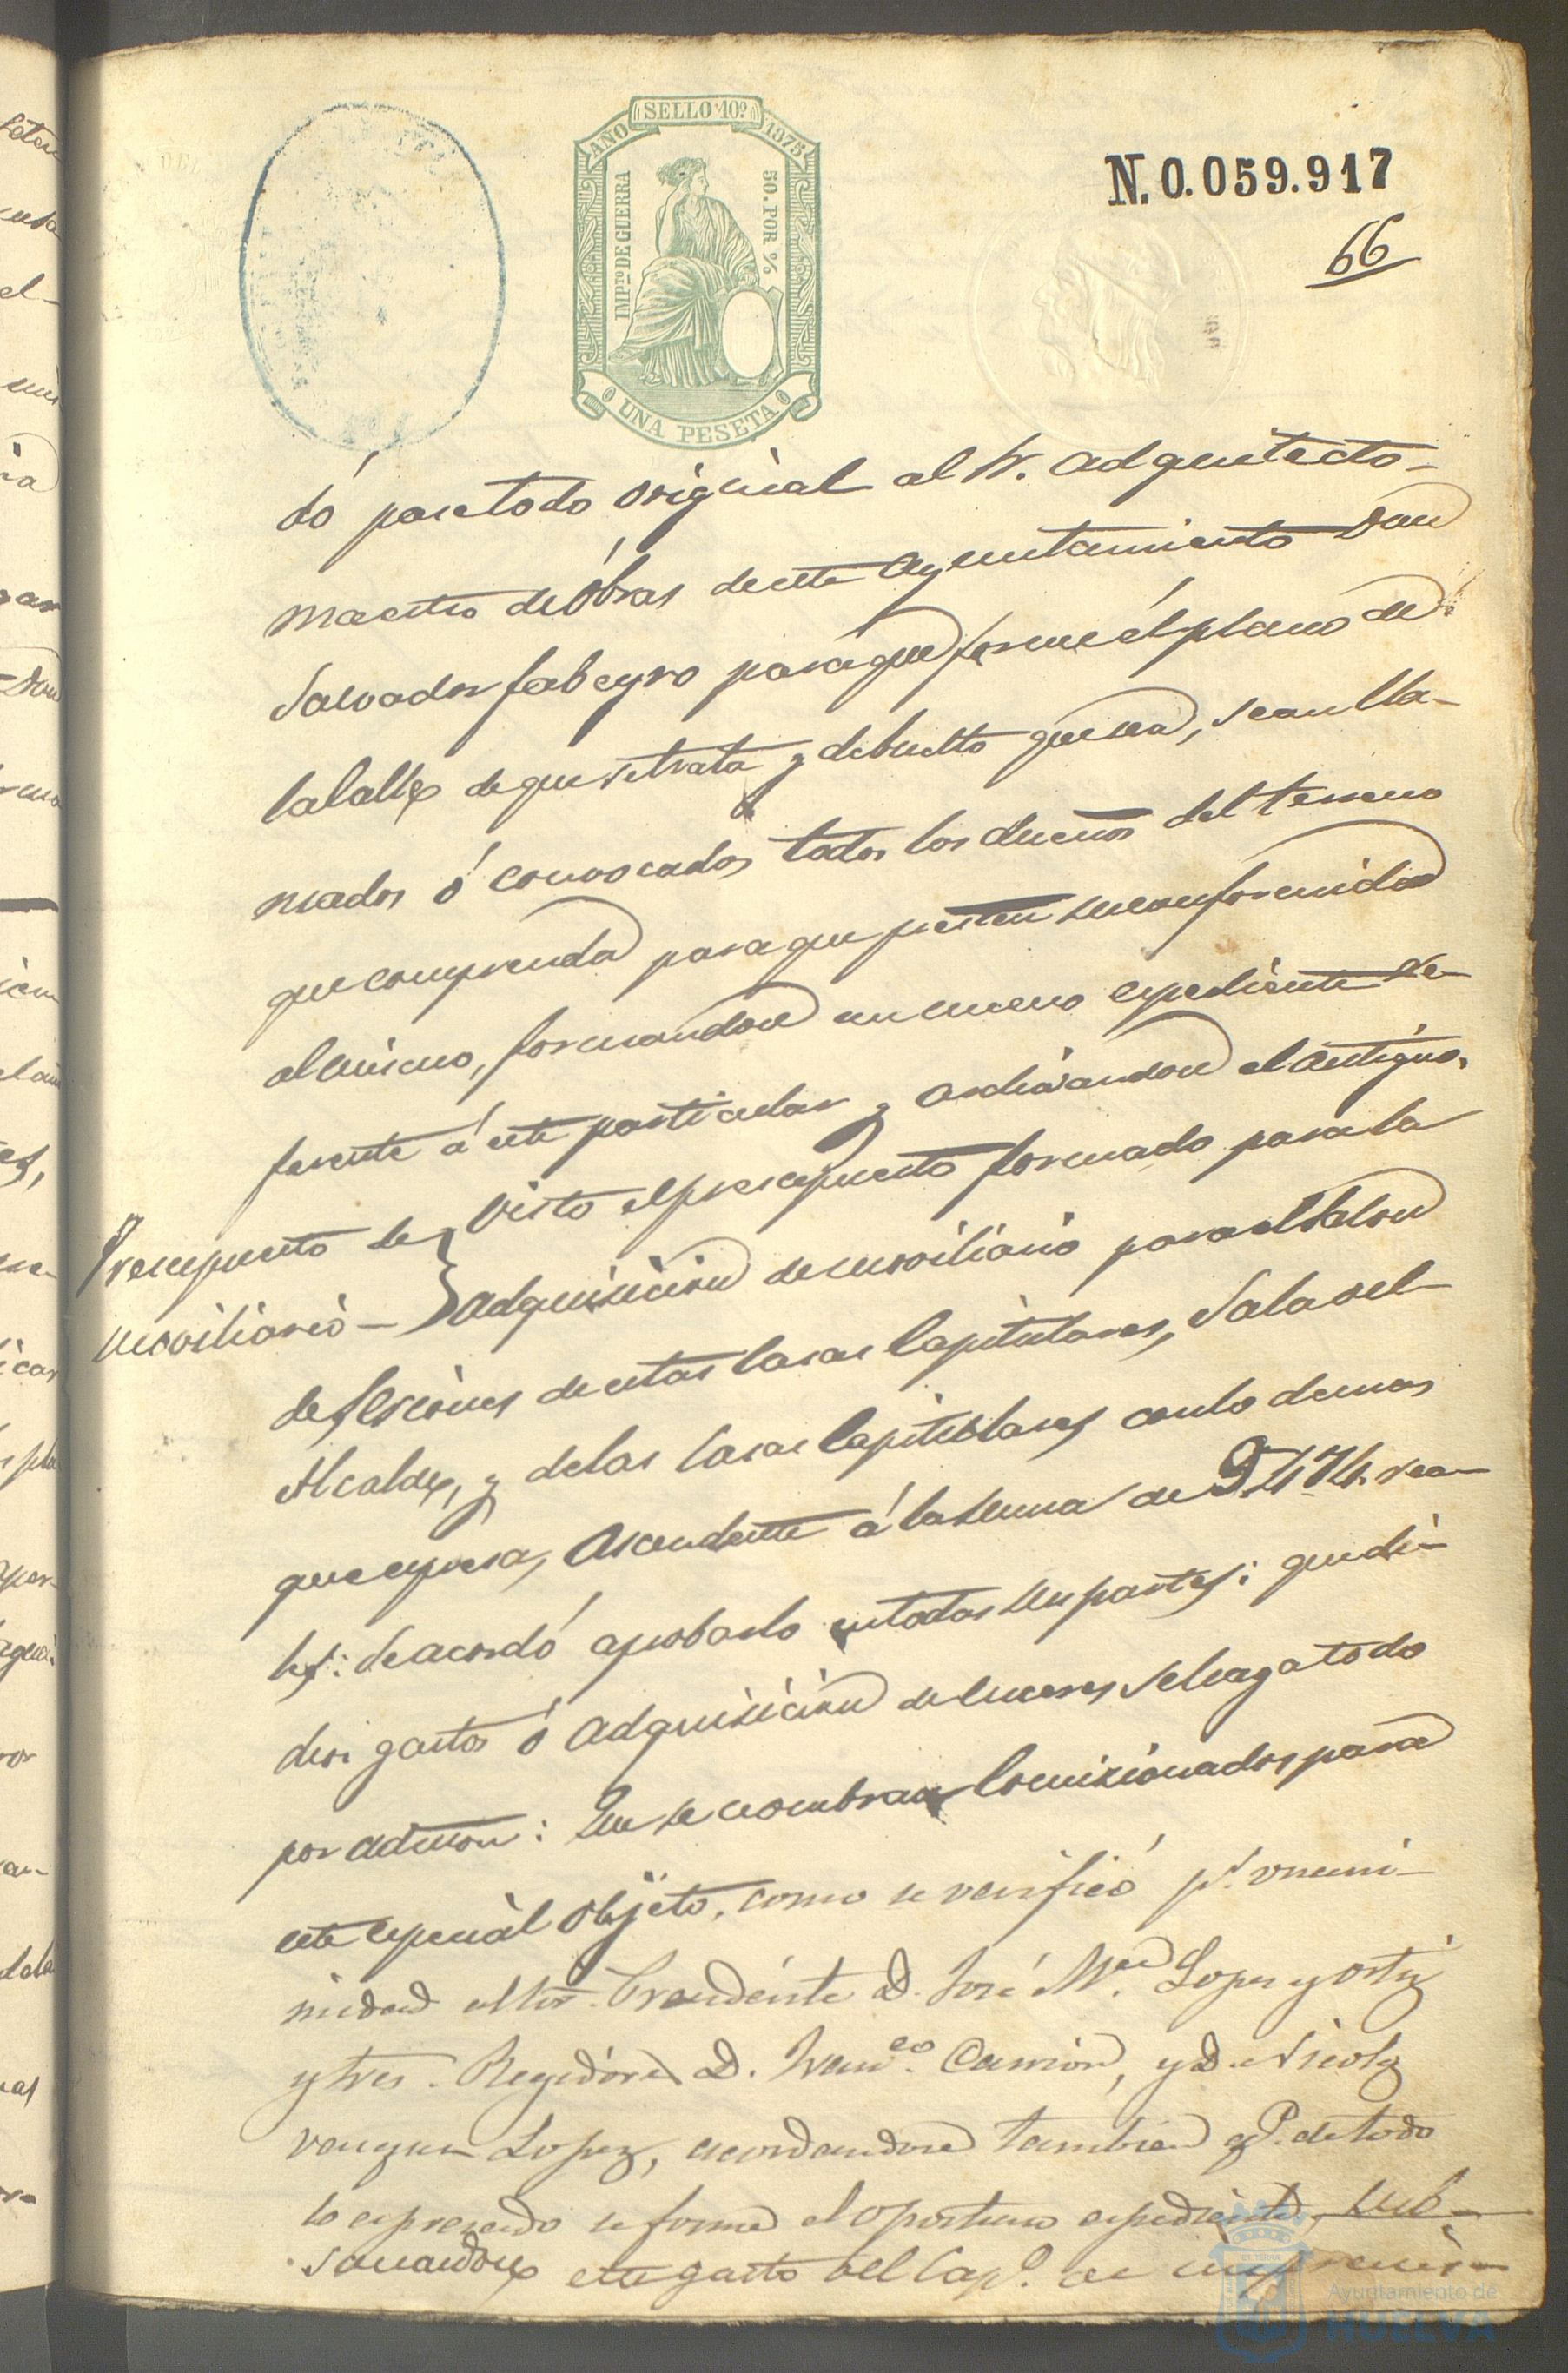 SELLO 10º
AÑO 1875
IMPtº DE GUERRA
50. POR %
UNA PESETA
N. 0.059.917
66
dó pase todo original al Sr. Adquitecto-
maestro de Obras de este Ayuntamiento Don
Salvador fabeyro para que forme él plano de
la Calle de que se trata y debuelto que sea, sean lla-
mados ó convocados todos los dueños del terreno
que comprenda para que presten su conformidad
al mismo, formandose un nuevo espediente re-
ferente á este particular y archivandose el antiguo.
Presupuesto de
moviliario-
Visto el presupuesto formado para la
adquisicion de moviliario para el Salon
de Sesiones de estas Casas Capitulares, Sala del
Alcalde, y de las Casas Capitulares con lo demas
que espresa, Ascendente á la suma de 9.474. rea-
les: Se acordó aprobarlo en todas sus partes: que di-
chos gastos ó adquisicion de enseres se haga todo
por admon: Que se nombran Comisionados para
este especial objeto, como se verificó pr. unani-
midad al Sor. Presidente D. José Mª. Lopez y Ortiz
y Sres. Regidores D. Franco. Carrion, y D. Nicolas
Vazquez Lopez, acordandose tambien q. de todo
lo espresado se forme el oportuno espediente, sub-
sanandose este gasto del Capº. de imprevis-
Ayuntamiento de
HUELVA